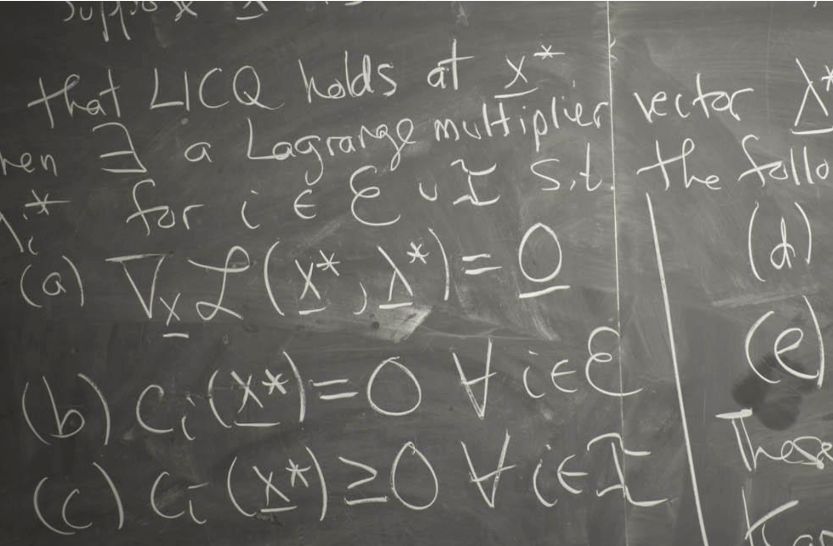 that LICQ holds at x*
∃ a Lagrange multiplier vector λ*
λᵢ* for i ∈ ℰ ∪ ℐ s.t. the follo
(a) ∇ₓ ℒ(x*, λ*) = 0
(b) cᵢ(x*) = 0 ∀ i∈ℰ
(c) cᵢ(x*) ≥ 0 ∀ i∈ℐ
(d)
(e)
These